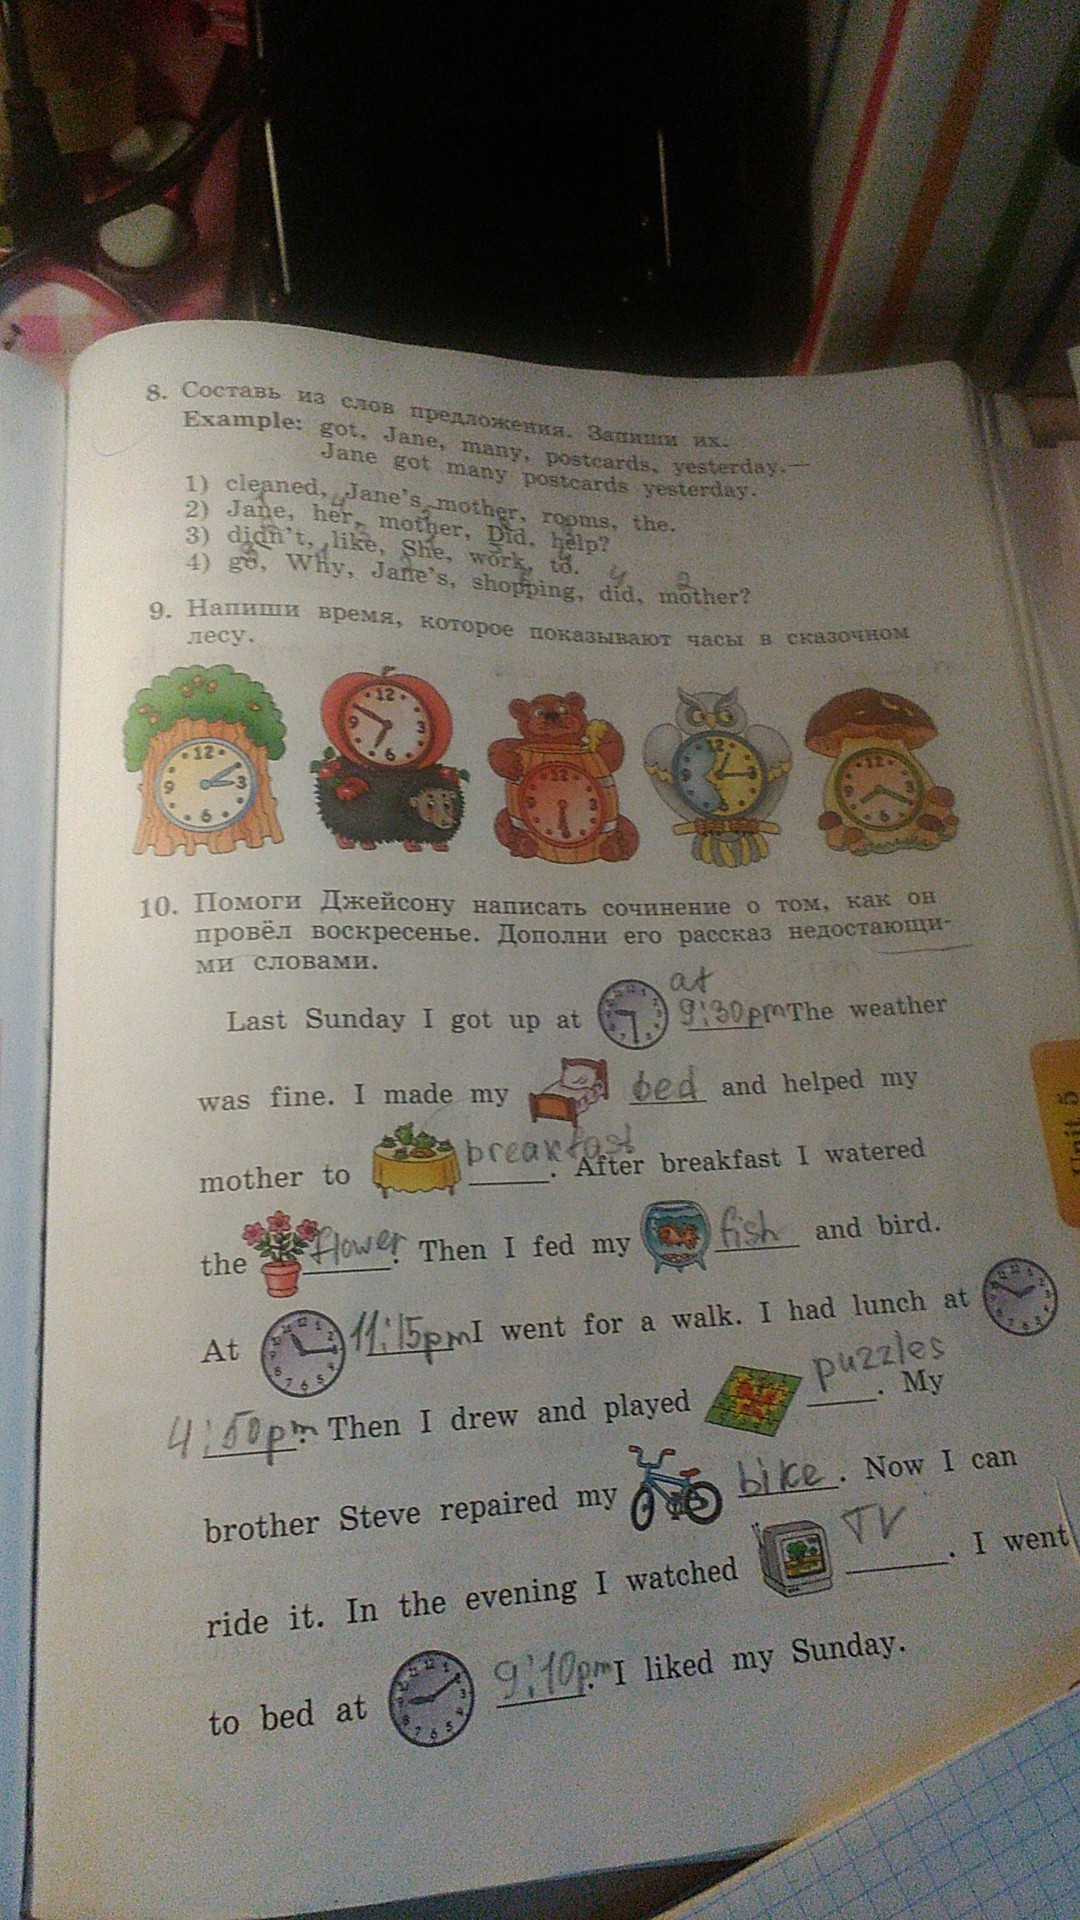 8. Составь из слов предложения. Запиши их.
Example: got, Jane, many, postcards, yesterday.—
Jane got many postcards yesterday.
1) cleaned, Jane's mother, rooms, the.
2) Jane, her, mother, Did, help?
3) didn't, like, She, work, to.
4) go, Why, Jane's, shopping, did, mother?
9. Напиши время, которое показывают часы в сказочном
лесу.
10. Помоги Джейсону написать сочинение о том, как он
провёл воскресенье. Дополни его рассказ недостающи-
ми словами.
at
Last Sunday I got up at 9:30pm The weather
was fine. I made my bed and helped my
mother to breakfast. After breakfast I watered
the flower. Then I fed my fish and bird.
At 11:15pm I went for a walk. I had lunch at
4:50pm. Then I drew and played puzzles. My
brother Steve repaired my bike. Now I can
ride it. In the evening I watched TV. I went
to bed at 9:10pm. I liked my Sunday.
Unit 5